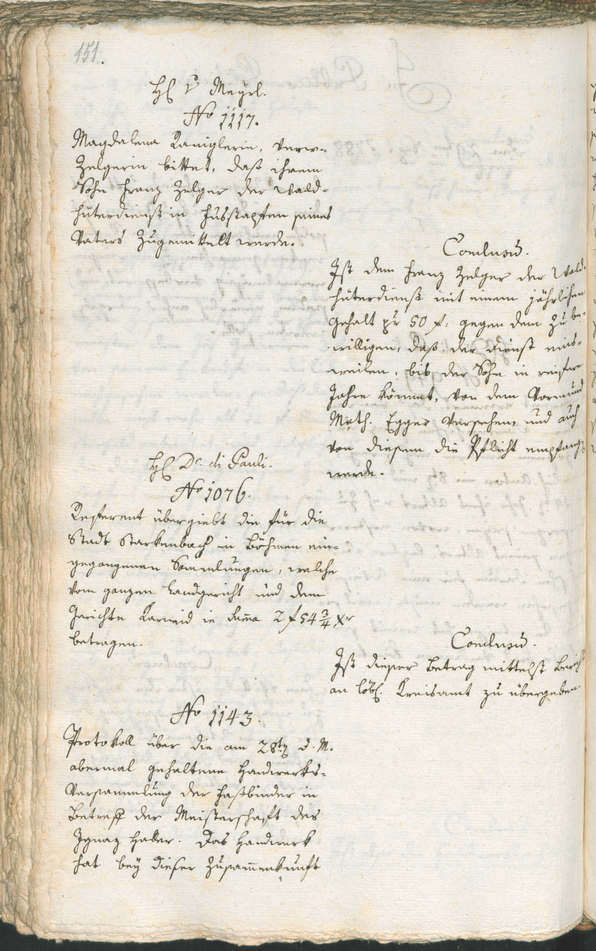 151.
H. v. Mayrl.
No 1117.
Magdalena Kaniglerin, verw.
Zelgerin bittet, daß ihrem
Sohn Franz Zelger der Wald-
hüterdienst in Fußstapfen seines
Vaters zugemittelt werde.
Conclusū.
Ist dem Franz Zelger der Wald-
hüterdienst mit einem jährlichen
Gehalt pr 50 f. gegen dem zu be-
willigen, daß der Dienst einst-
weilen, bis der Sohn in reifere
Jahre kömmt, von dem Vormund
Math. Egger versehen, und auch
von diesem die Pflicht empfangen
werde.
H. Dr. di Pauli.
No 1076.
Referent übergiebt die für die
Stadt Starkenbach in Böhmen ein-
gegangenen Samlungen, welche
vom ganzen Landgericht und dem
Gerichte Karneid in Suma 2 f 54 3/4 xr
betragen.
Conclusū.
Ist dieser Betrag mittelst Bericht
an löbl. Kreisamt zu übergeben.
No 1143.
Protokoll über die am 28ten d. M.
abermal gehaltene Handwerks-
Versammlung der Faßbinder in
Betreff der Meisterschaft des
Ignaz Haber. Das Handwerk
hat bey dieser Zusammenkunft